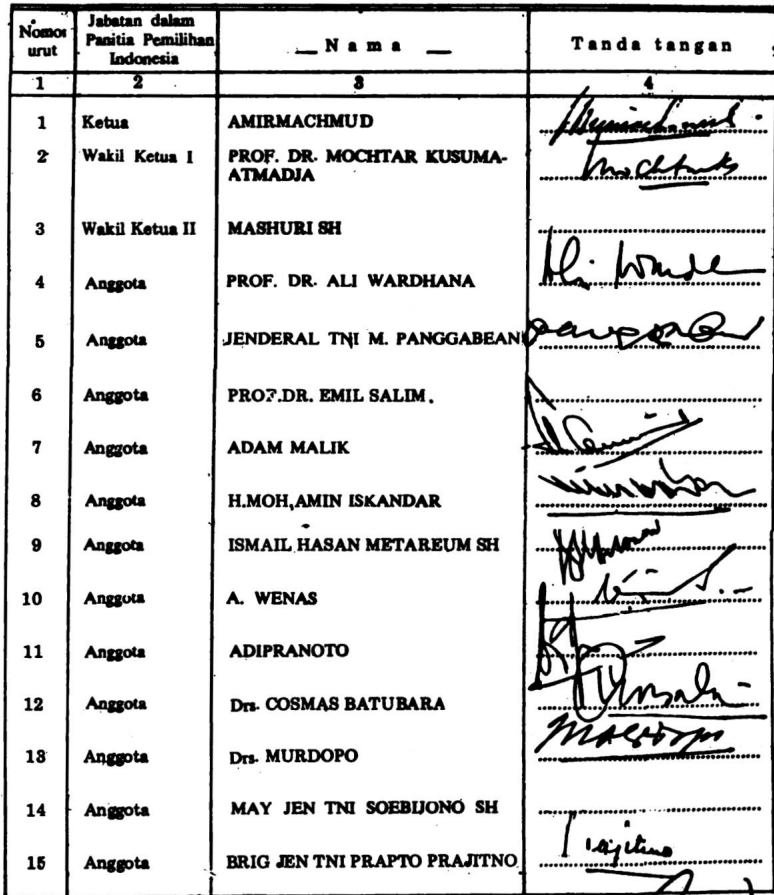 Nomor urut | Jabatan dalam Panitia Pemilihan Indonesia | Nama | Tanda tangan
1 | 2 | 3 | 4
1 Ketua AMIRMACHMUD
2 Wakil Ketua I PROF. DR. MOCHTAR KUSUMA-
ATMADJA
3 Wakil Ketua II MASHURI SH
4 Anggota PROF. DR. ALI WARDHANA
5 Anggota JENDERAL TNI M. PANGGABEAN
6 Anggota PROF.DR. EMIL SALIM.
7 Anggota ADAM MALIK
8 Anggota H.MOH,AMIN ISKANDAR
9 Anggota ISMAIL HASAN METAREUM SH
10 Anggota A. WENAS
11 Anggota ADIPRANOTO
12 Anggota Drs. COSMAS BATUBARA
13 Anggota Drs. MURDOPO
14 Anggota MAY JEN TNI SOEBIJONO SH
15 Anggota BRIG JEN TNI PRAPTO PRAJITNO